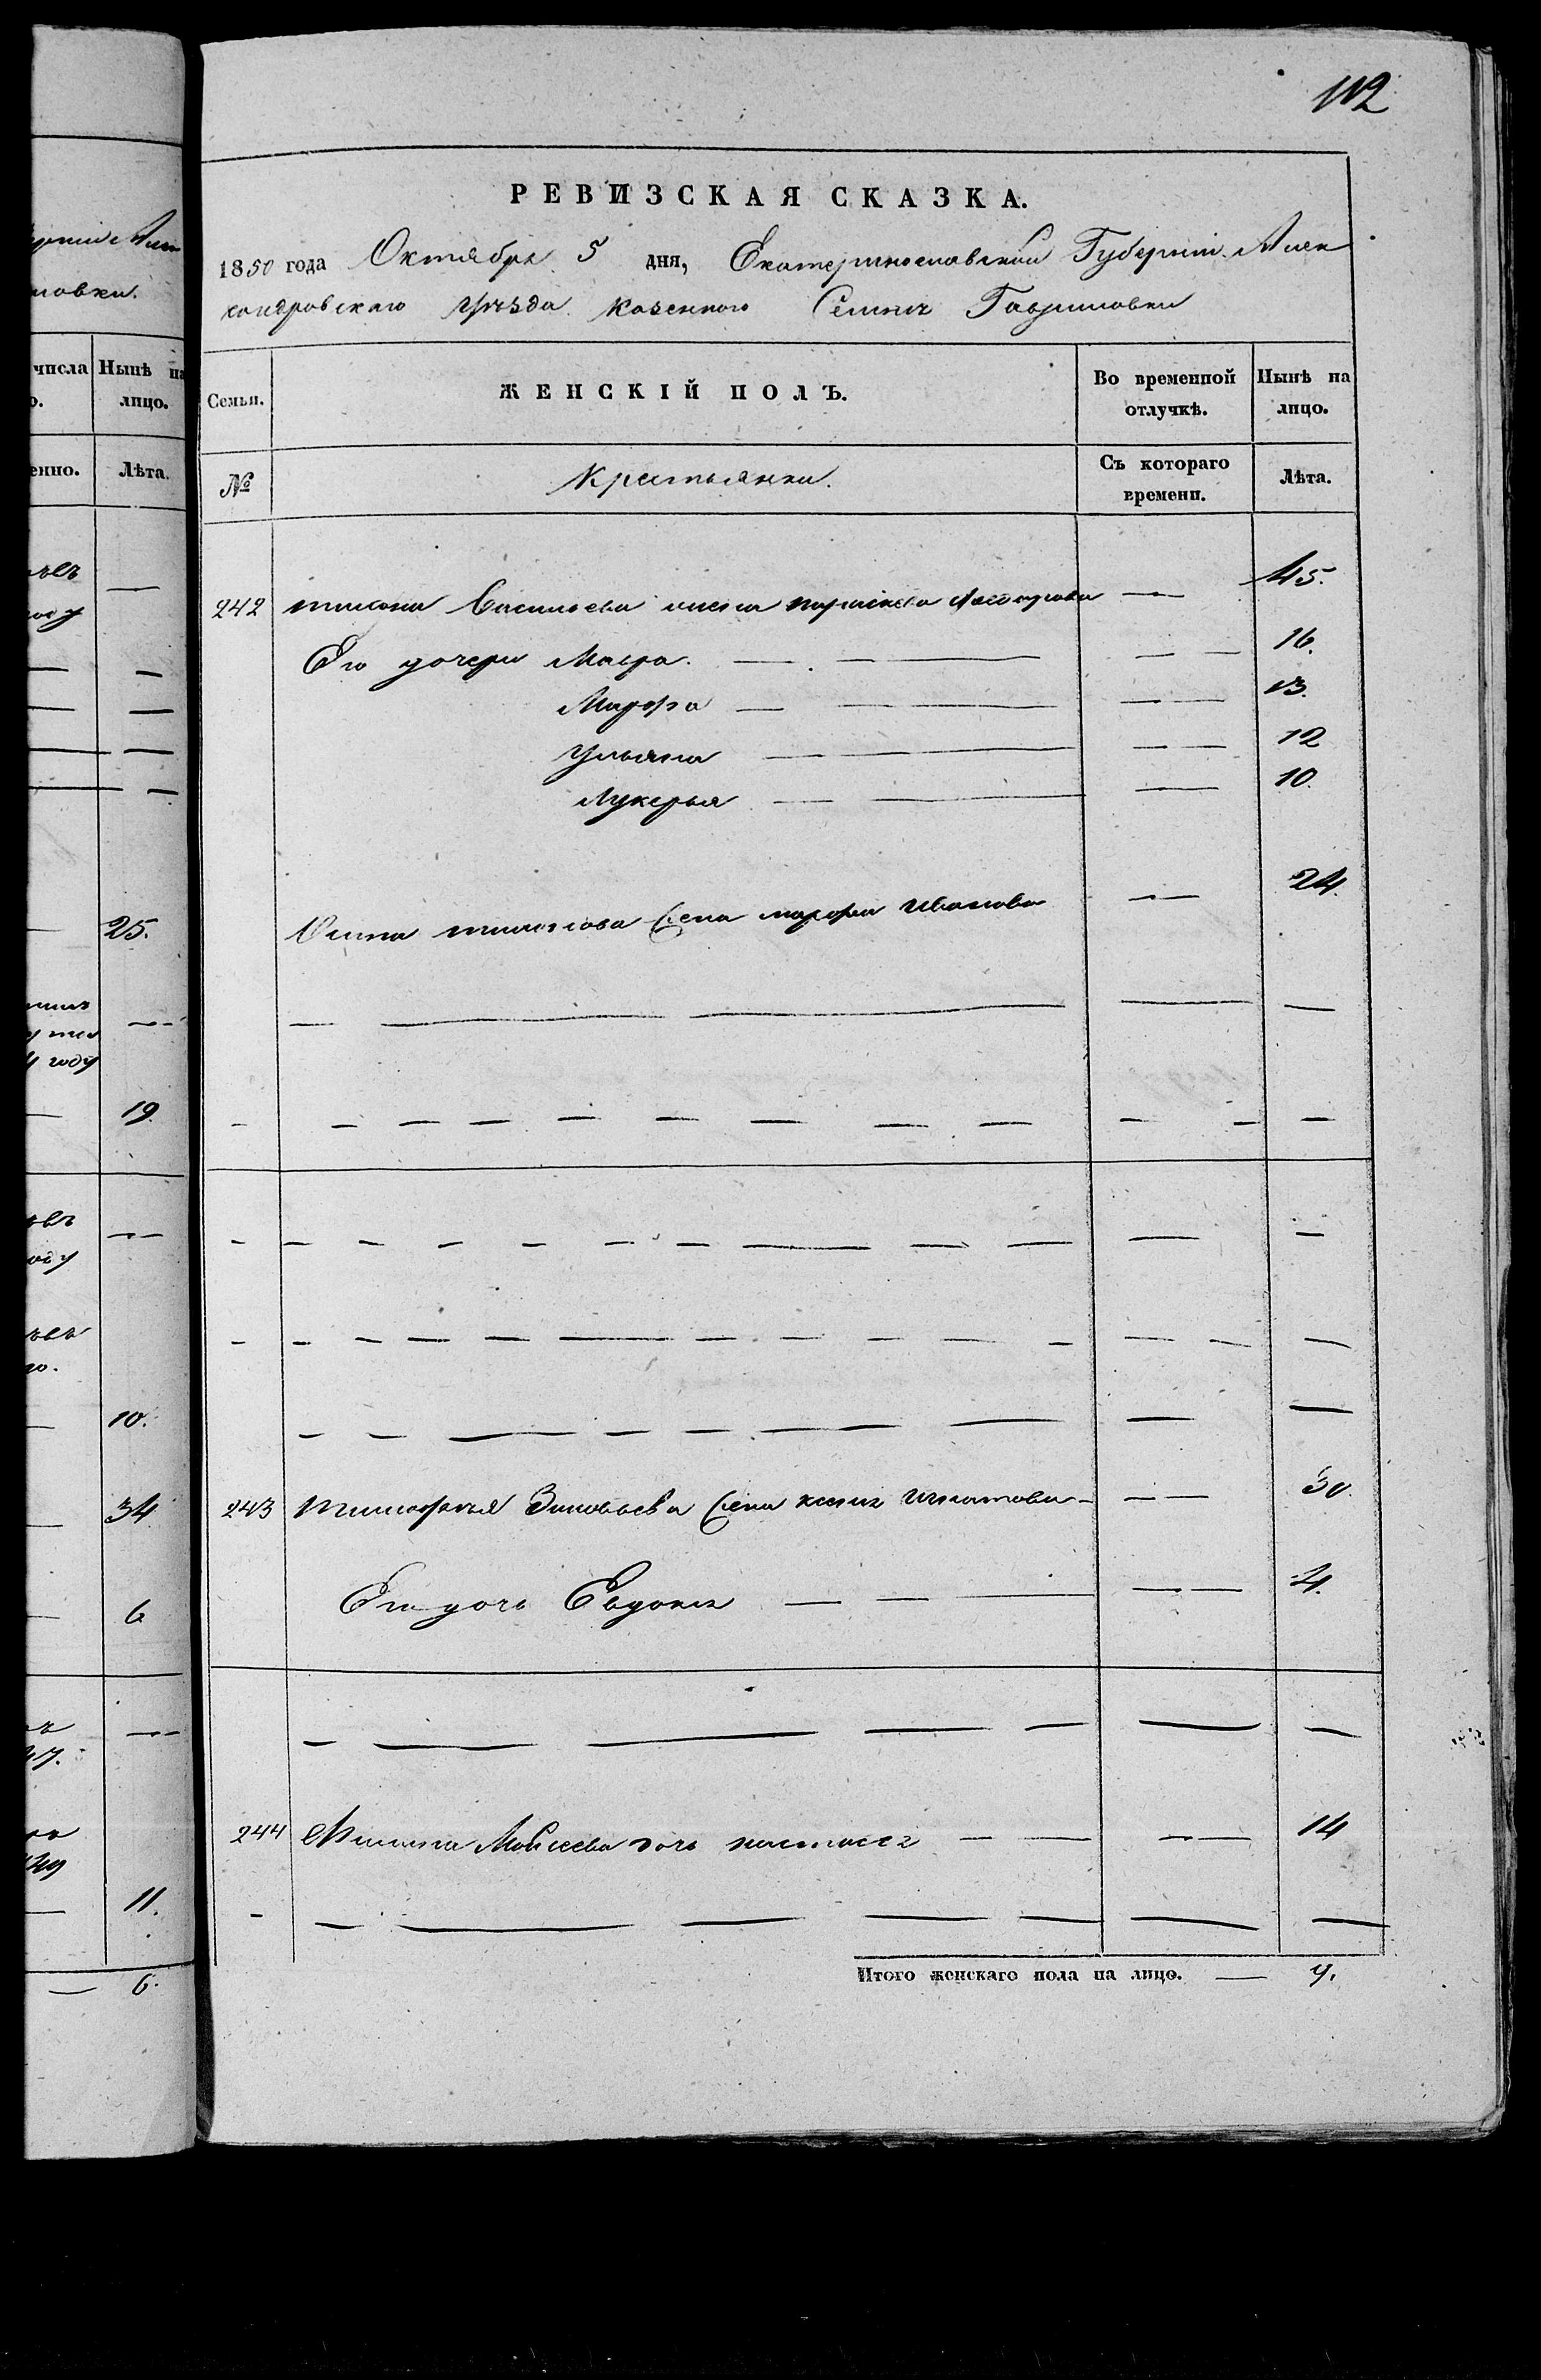 112
РЕВИЗСКАЯ СКАЗКА.
1850 года Октября 5 дня, Екатеринославской Губернии Алек
сандровскаго Уѣзда казенного Селения Гавриловки
Семьи. ЖЕНСКІЙ ПОЛЪ. Во временной отлучкѣ. Нынѣ на лицо.
№ Крестьянки. Съ котораго времени. Лѣта.
242 Васильева жена — 45.
Его дочери Мавра — — 16.
Марфа — — 13.
Ульяна — — 12
Лукерья — — 10.
жена марфа Иванова — 24.
243 тимофея Зиновьева жена — 30.
Его дочь Евдокия — — 4.
244 Моисеева дочь настасея — — 14
Итого женскаго пола на лицо. — 9.
числа Нынѣ на
лицо.
Лѣта.
25.
году
19.
10.
34
6
47.
11.
6.